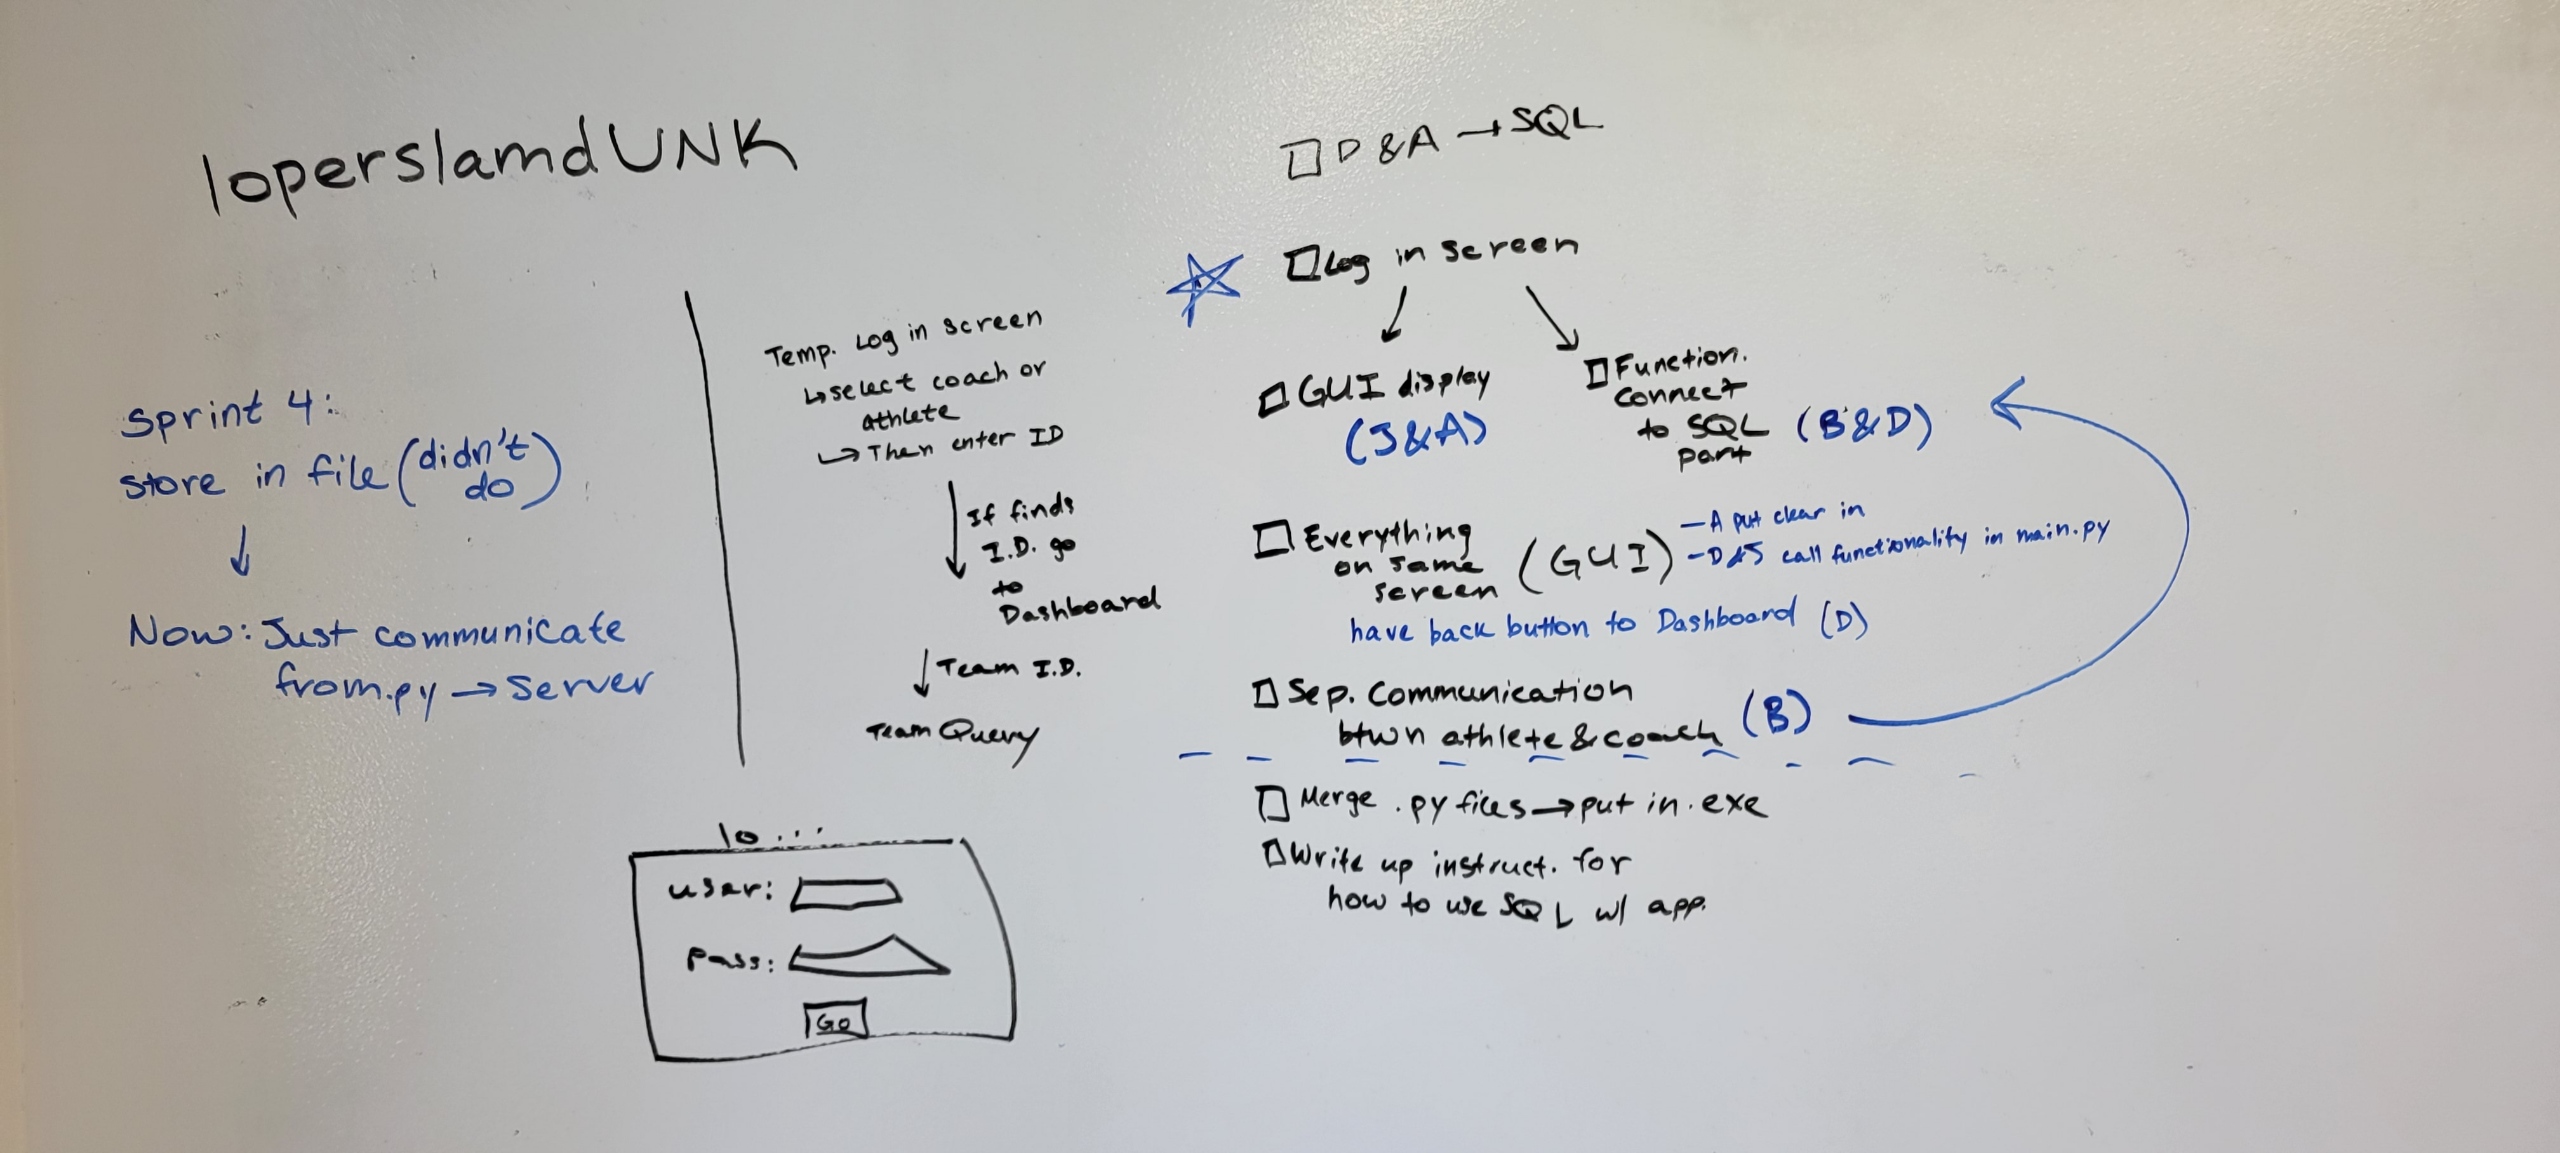 loperslamdUNK
Sprint 4:
store in file (didn't
do)
Now: Just communicate
from .py → Server
Temp. Log in screen
↳ select coach or
athlete
↳ Then enter ID
If finds
I.D. go
to
Dashboard
Team I.D.
Team Query
lo...
user:
Pass:
Go
D & A → SQL
Log in screen
GUI display
(J & A)
Function.
connect
to SQL (B & D)
part
Everything
on same
screen (GUI)
- A put clear in
- D & J call functionality in main.py
have back button to Dashboard (D)
Sep. Communication
btwn athlete & coach (B)
Merge .py files → put in .exe
Write up instruct. for
how to use SQL w/ app.